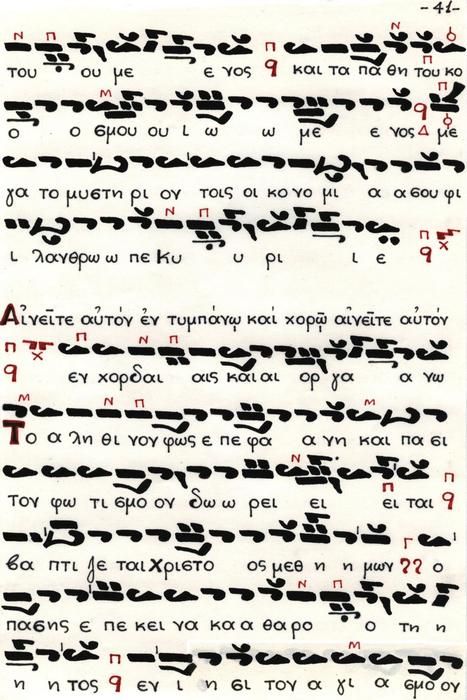 -41-
του ου με ε νος και τα πα θη του κο
ο ο σμου ου ι ω ω με ε νος Δ με
γα το μυστη ρι ον τοις οι κο νο μι α α σου φι
ι λανθρω ω πε Κυ υ ρι ι ε
Αἰνεῖτε αὐτόν ἐν τυμπάνῳ καί χορῷ αἰνεῖτε αὐτόν
εν χορδαι αις και αι ορ γα α νω
Το α λη θι νον φως ε πε φα α νη και πα σι
τον φω τι σμο ον δω ω ρει ει ει ται
βα πτι ζε ται Χριστο ος μεθ η η μων ο
πασης ε πε κει να κα α θαρο ο τη η
η η τος εν ι η σι τον α γι α σμο ον